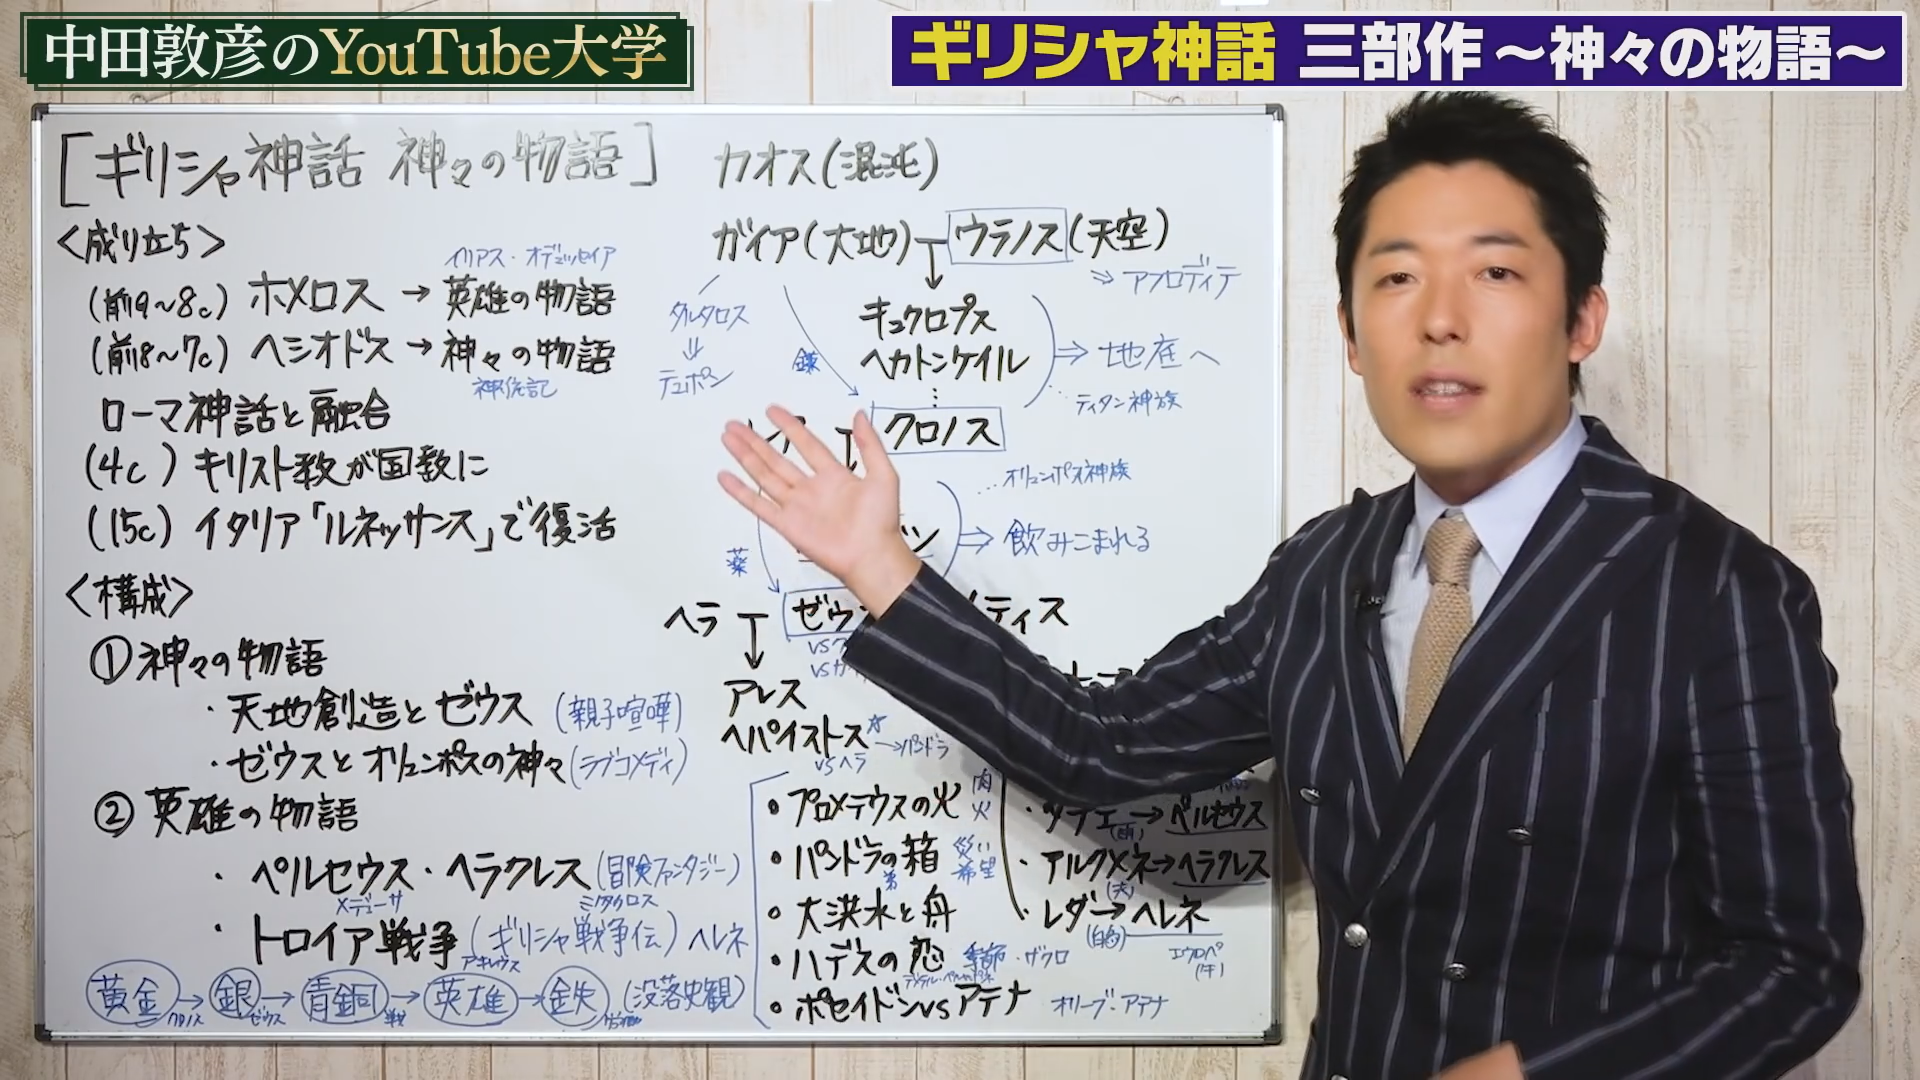 中田敦彦のYouTube大学
ギリシャ神話 三部作 ～神々の物語～
[ギリシャ神話 神々の物語]
<成り立ち>
イリアス・オデュッセイア
(前9~8c) ホメロス → 英雄の物語
(前8~7c) ヘシオドス → 神々の物語
神統記
ローマ神話と融合
(4c) キリスト教が国教に
(15c) イタリア「ルネッサンス」で復活
<構成>
① 神々の物語
・天地創造とゼウス (親子喧嘩)
・ゼウスとオリュンポスの神々 (ラブコメディ)
② 英雄の物語
・ペルセウス・ヘラクレス (冒険ファンタジー)
メデューサ
・トロイア戦争 (ギリシャ戦争伝) ヘレネ
アキレウス
黄金 → 銀 → 青銅 → 英雄 → 鉄 (没落史観)
クロノス ゼウス
カオス (混沌)
ガイア (大地) ウラノス (天空)
⇒ アフロディテ
タルタロス
⇓
テュポン
鎌
キュクロプス
ヘカトンケイル
⇒ 地底へ
… ティタン神族
クロノス
… オリュンポス神族
⇒ 飲みこまれる
薬
ヘラ ゼウ ティス
アレス
ヘパイストス → パンドラ
vsヘラ
・プロメテウスの火 肉 火
・パンドラの箱 災い 希望
・大洪水と舟
・ハデスの恋 季節・ザクロ
・ポセイドンvsアテナ オリーブ・アテナ
→ ペルセウス
・アルクメネ → ヘラクレス
(夫)
・レダ → ヘレネ
(白鳥)
エウロペ